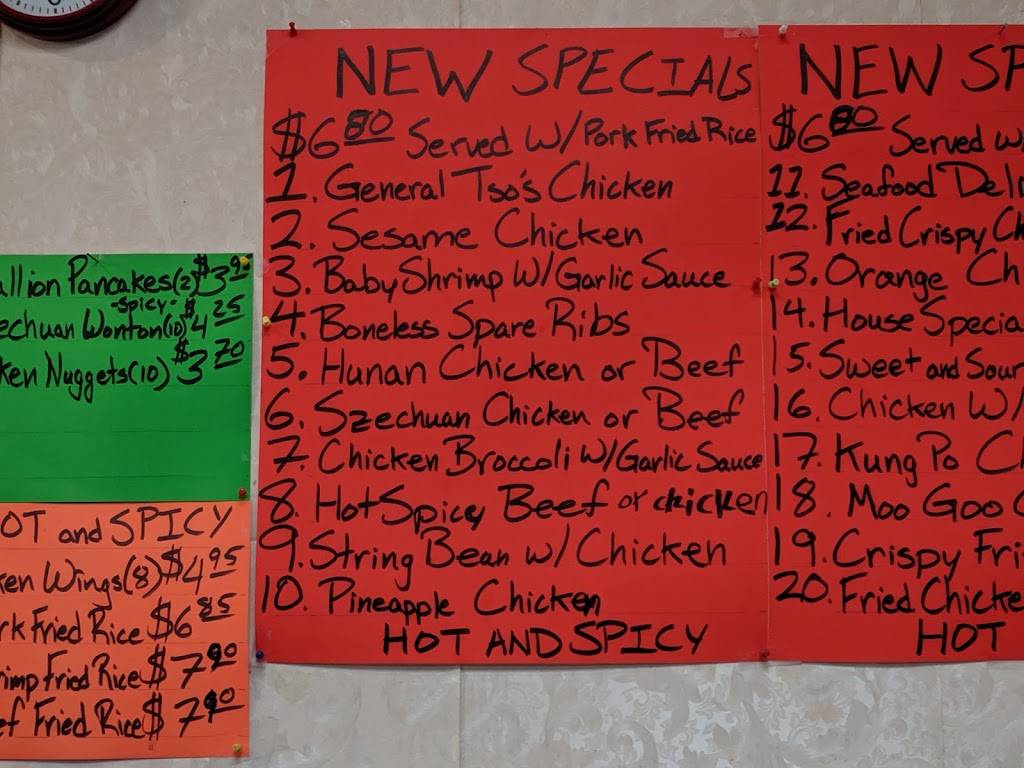 Pancakes(10) $3.90
-spicy-
Wonton(10) $4.25
Nuggets(10) $3.70
and SPICY
Wings(8) $4.95
Fried Rice $6.85
Fried Rice $7.90
Fried Rice $7.90
NEW SPECIALS
$6.80 Served W/Pork Fried Rice
1. General Tso's Chicken
2. Sesame Chicken
3. Baby Shrimp W/Garlic Sauce
4. Boneless Spare Ribs
5. Hunan Chicken or Beef
6. Szechuan Chicken or Beef
7. Chicken Broccoli W/Garlic Sauce
8. Hot Spicy Beef or chicken
9. String Bean w/ Chicken
10. Pineapple Chicken
HOT AND SPICY
NEW SP
$6.80 Served W/
11. Seafood Deli
12. Fried Crispy Ch
13. Orange Ch
14. House Specia
15. Sweet and Sour
16. Chicken W/
17. Kung Po C
18. Moo Goo G
19. Crispy Fri
20. Fried Chicke
HOT